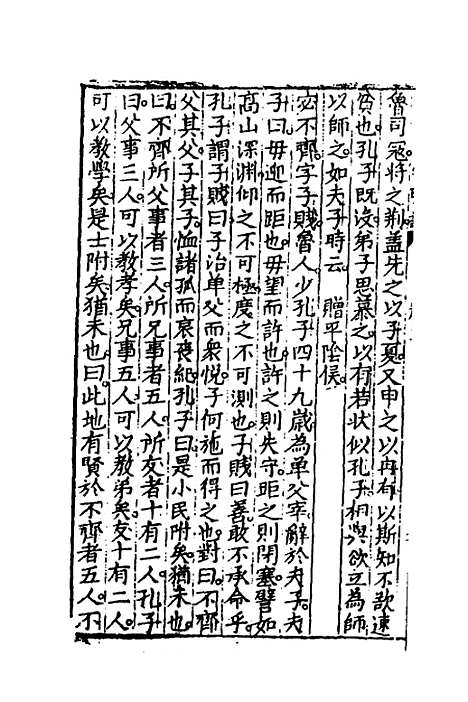 魯司冦將之荆盖先之以子夏又申之以冉有以斯知不欲速
貧也孔子既沒弟子思慕之以有若状似孔子相與欲立為師
以師之如夫子時云 贈平陰侯
宓不齊字子賤魯人少孔子四十九歲為单父宰辭於夫子夫
子曰毋迎而距也毋望而許也許之則失守距之則閉塞譬如
高山深淵仰之不可極度之不可測也子賤曰善敢不承命乎
孔子謂子賤曰子治单父而衆悅子何施而得之也對曰不齊
父其父子其子恤諸孤而哀喪紀孔子曰是小民附矣猶未也
曰不齊所父事者三人所兄事者五人所友者十有二人孔子
曰父事三人可以教孝矣兄事五人可以教弟矣友十有二人
可以教學矣是士附矣猶未也曰此地有賢於不齊者五人不